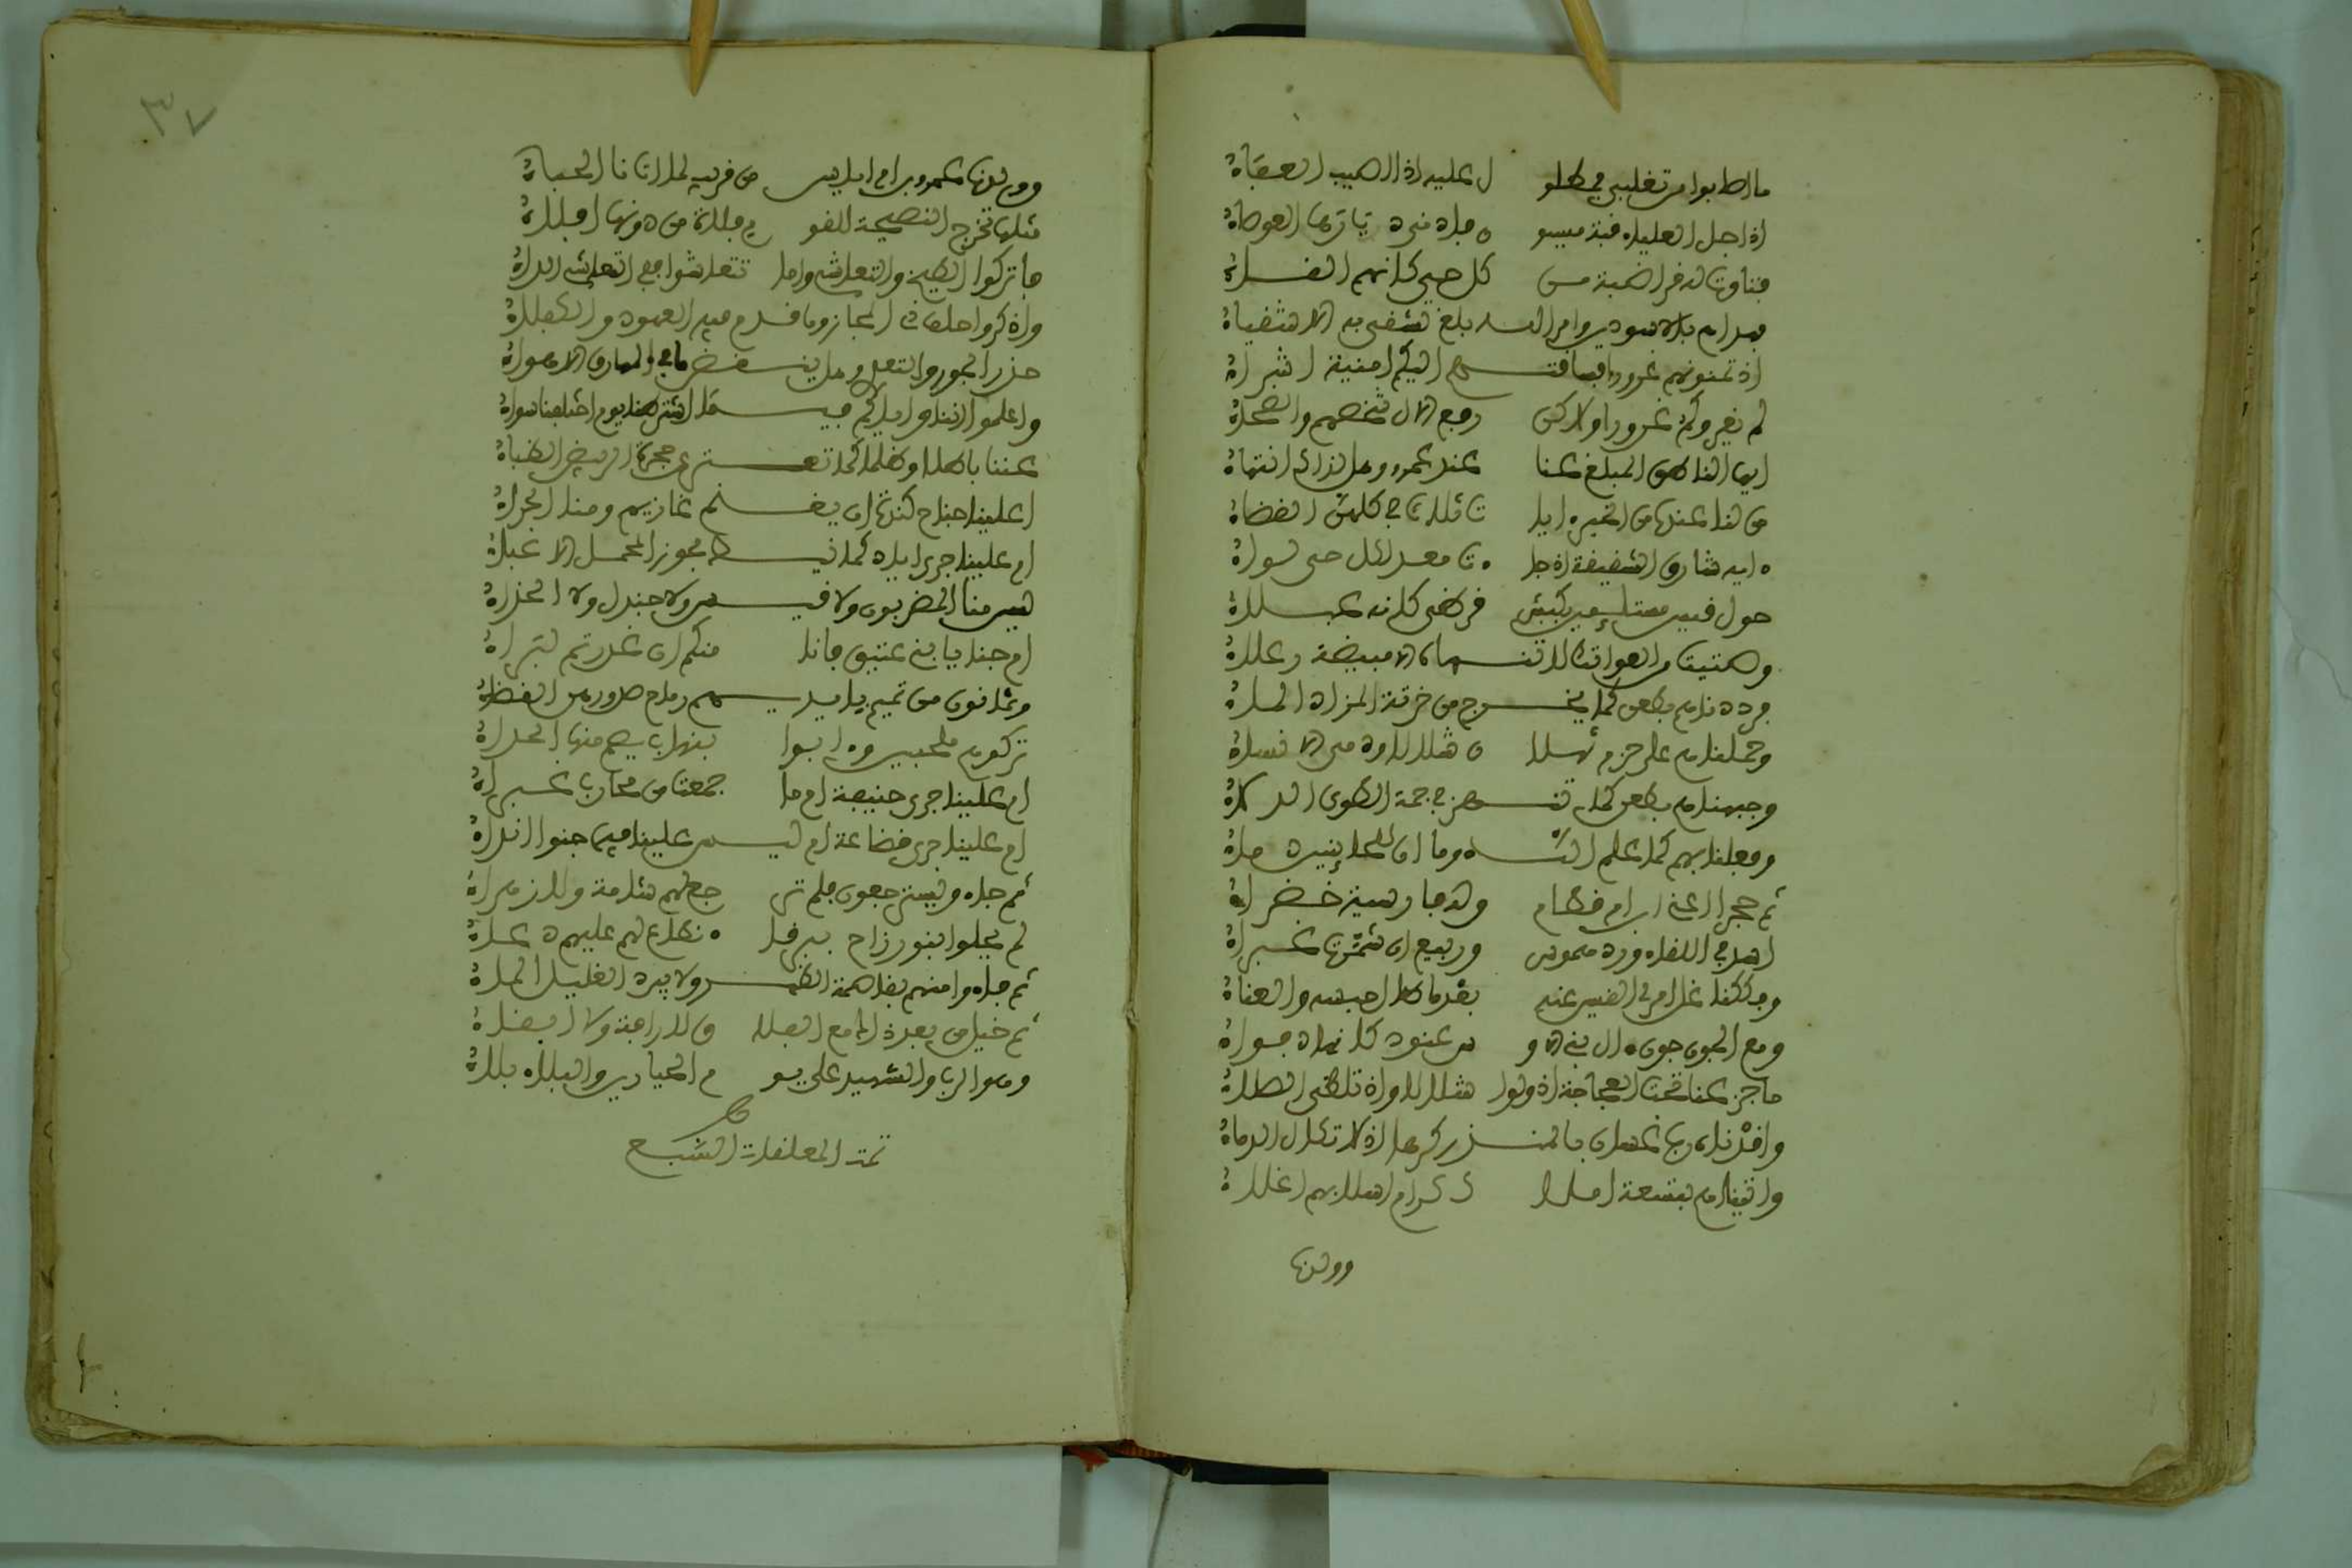 ما اصابوا من تغلبي فمطلو ل عليه اذا اصيب العفاء
اذ احل العلياء قبة ميسو ن فادنى ديارها العوصاء
فتاوت له قراضبة من كل حي كانهم القاء
فهداهم بالاسودين وامر الله بلغ تشقى به الاشقياء
اذ تمنونهم غرورا فساقتهم اليكم امنية اشراء
لم يغروكم غرورا ولاكن رفع الال شخصهم والضحاء
ايها الناطق المبلغ عنا عند عمرو وهل لذاك انتهاء
من لنا عنده من الخير ايا ت ثلاث في كلهن القضاء
ه ايه شارق الشقيقة اذ جا ءت معد لكل حي لواء
حول قيس مستلئمين بكبش قرظي كانه عبلاء
وصتيت من العواتك لا تنهاه الا مبيضة رعلاء
فرددناهم بطعن كما يخرج من خربة المزاد الماء
وحملناهم على حزم ثهلا ن شلالا ودمى الانساء
وجبهناهم بطعن كما تنهز في جمة الطوى الدلاء
وفعلنا بهم كما علم الله وما ان للحائنين دماء
ثم حجرا اعني ابن ام قطام وله فارسية خضراء
اسد في اللقاء ورد هموس وربيع ان شمرت غبراء
وفككنا غل امرئ القيس عنه بعد ما طال حبسه والعناء
ومع الجون جون ال بني الاو س عنود كانها دفواء
ما جزعنا تحت العجاجة اذ ولوا شلالا واذ تلظى الصلاء
واقدناه رب غسان بالمنذر كرها اذ لا تكال الدماء
واتيناهم بتسعة املا ك كرام اسلابهم اغلاء
وولدنا
٣٧
وولدنا عمرو بن ام اياس من قريب لما اتانا الحباء
مثلها تخرج النصيحة للقو م فلاة من دونها افلاء
فاتركوا الطيخ والتعاشي واما تتعاشوا ففي التعاشي الداء
واذكروا حلف ذي المجاز وما قدم فيه العهود والكفلاء
حذر الجور والتعدي وهل ينقض ما في المهارق الاهواء
واعلموا اننا واياكم فيما اشترطنا يوم اختلفنا سواء
عننا باطلا وظلما كما تعتر عن حجرة الربيض الظباء
اعلينا جناح كندة ان يغنم غازيهم ومنا الجزاء
ام علينا جرى اياد كما نيط بجوز المحمل الاعباء
ليس منا المضربون ولا قيس ولا جندل ولا الحذاء
ام جنايا بني عتيق فانا منكم ان غدرتم لبراء
وثمانون من تميم بايديهم رماح صدورهن القضاء
تركوهم ملحبين وءابوا بنهاب يصم منها الحداء
ام علينا جرى حنيفة ام ما جمعت من محارب غبراء
ام علينا جرى قضاعة ام ليس علينا فيما جنوا انداء
ثم جاءو يسترجعون فلم تر جع لهم شامة ولا زهراء
لم يحلوا بنو رزاح ببرقا ء نطاع لهم عليهم دعاء
ثم فاءوا منهم بقاصمة الظهر ولا يبرد الغليل الماء
ثم خيل من بعد ذاك مع الغلا ق لا رافة ولا ابقاء
وهو الرب والشهيد على يو م الحيارين والبلاء بلاء
تمت المعلقات السبع